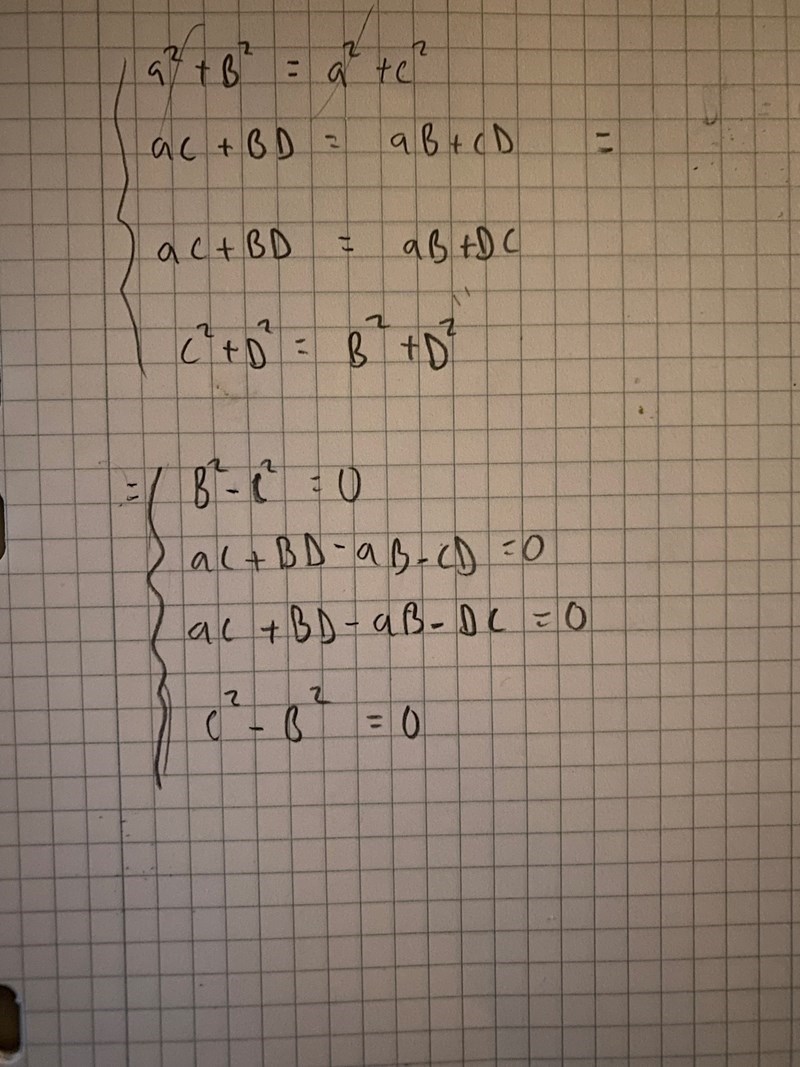 a² + B² = a² + c²
ac + BD = aB + cD =
ac + BD = aB + DC
c² + D² = B² + D²
= B² - c² = 0
ac + BD - aB - cD = 0
ac + BD - aB - DC = 0
c² - B² = 0